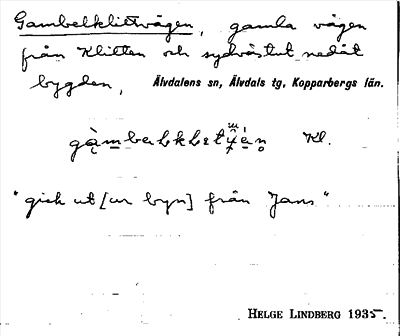 Gambelklittvägen, gamla vägen
från Klitten och sydvästut nedåt
bygden, Älvdalens sn, Älvdals tg, Kopparbergs län.
Kl.
"gick ut [ur byn] från Jans"
HELGE LINDBERG 1935.